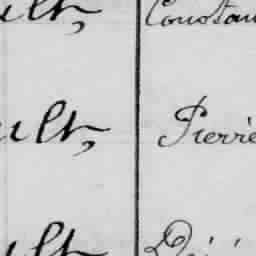 ult, Constan
ult, Pierre
ult,